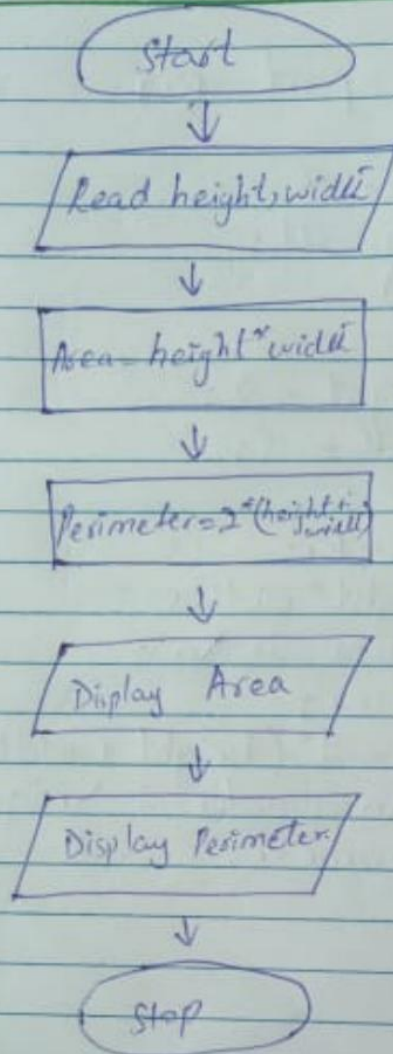 Start
Read height, width
Area = height * width
Perimeter = 2 * (height +
width)
Display Area
Display Perimeter
Stop